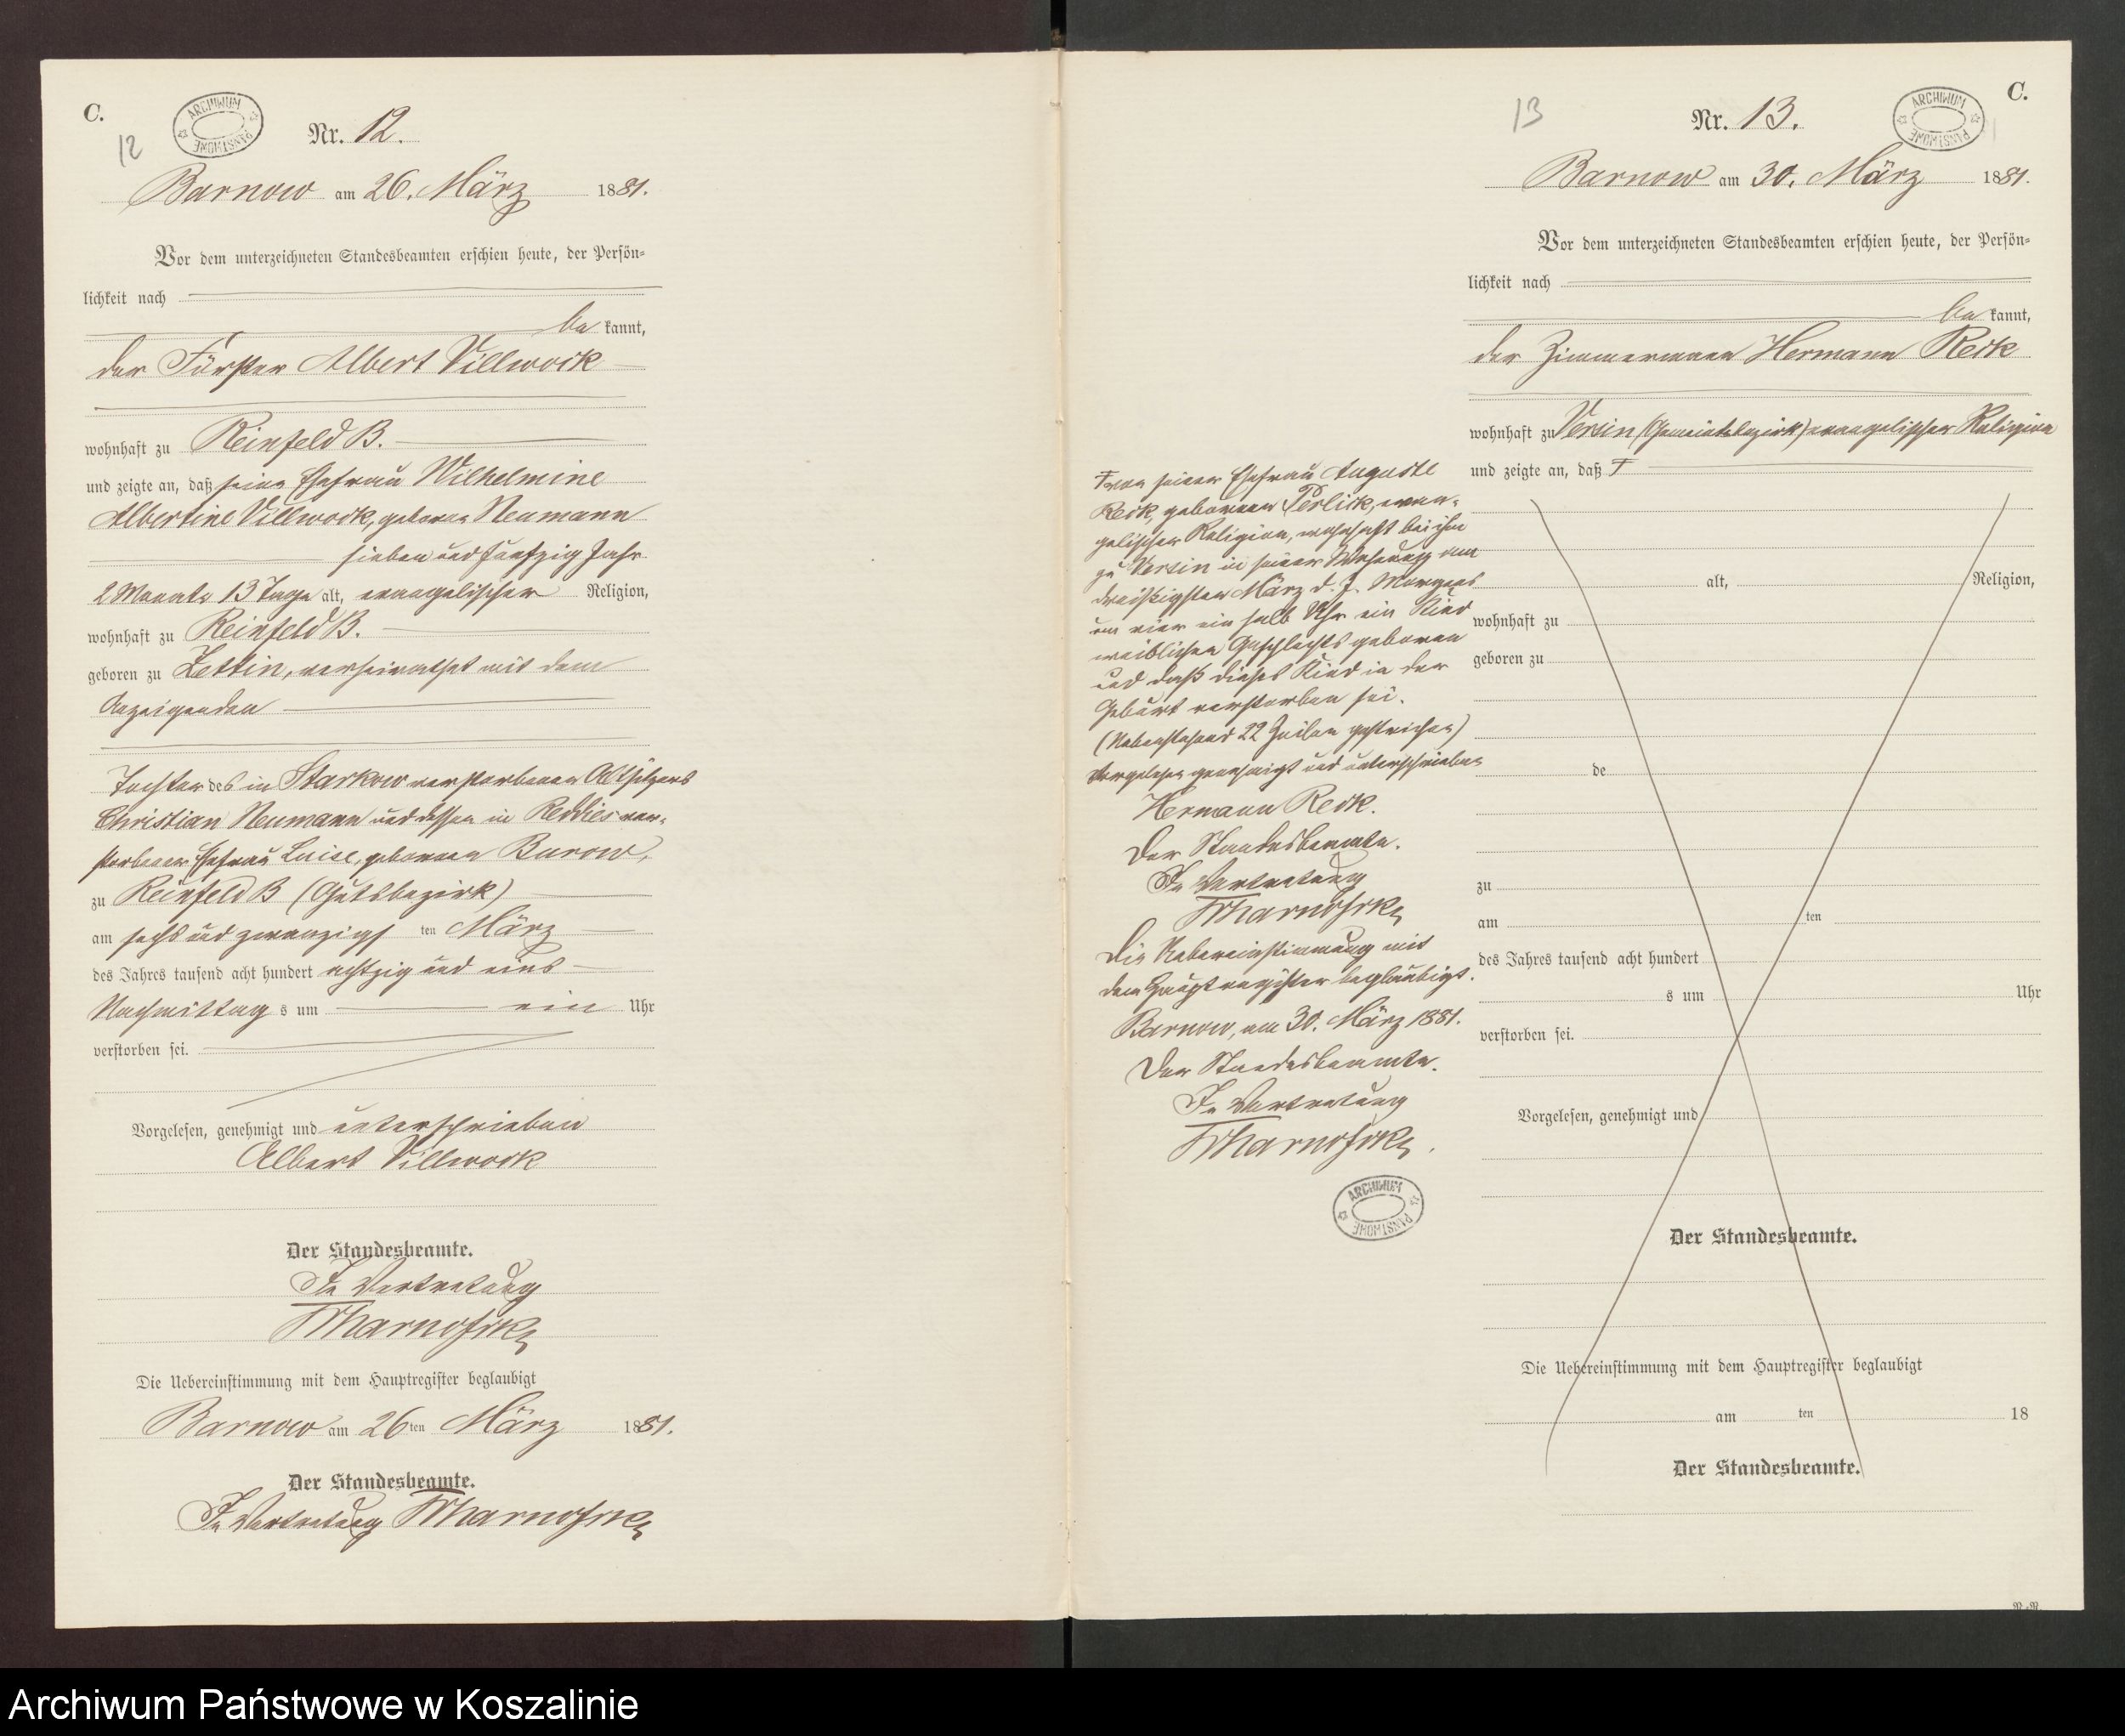 C.
ARCHIWUM PAŃSTWOWE
12
Nr. 12.
Barnow am 26. März 1881.
Vor dem unterzeichneten Standesbeamten erschien heute, der Persön-
lichkeit nach
be kannt,
der Förster Albert Villwock
wohnhaft zu Reinfeld B.
und zeigte an, daß seine Ehefrau Wilhelmine
Albertine Villwock, geborne Neumann
sieben und fünfzig Jahr
2 Monate 13 Tage alt, evangelischer Religion,
wohnhaft zu Reinfeld B.
geboren zu Zettin, verheirathet mit dem
Anzeigenden
Tochter des in Starkow verstorbenen Altsitzers
Christian Neumann und dessen in Reddies ver-
storbenen Ehefrau Luise, geborenen Burow,
zu Reinfeld B (Gutsbezirk)
am sechs und zwanzigs ten März
des Jahres tausend acht hundert achtzig und eins
Nachmittag s um ein Uhr
verstorben sei.
Vorgelesen, genehmigt und unterschrieben
Albert Villwock
Der Standesbeamte.
In Vertretung
Die Uebereinstimmung mit dem Hauptregister beglaubigt
Barnow am 26 ten März 1881.
Der Standesbeamte.
In Vertretung
C.
ARCHIWUM PAŃSTWOWE
13
Nr. 13.
Barnow am 30. März 1881.
Vor dem unterzeichneten Standesbeamten erschien heute, der Persön-
lichkeit nach
be kannt,
der Zimmermann Hermann Reck
wohnhaft zu Versin (Gemeindebezirk) evangelischer Religion
und zeigte an, daß Ŧ
Ŧ von seiner Ehefrau Auguste
Reck, geborenen Perlick, evan-
gelischer Religion, wohnhaft bei ihm
zu Versin in seiner Wohnung am
dreißigsten März d. J. Morgens
um vier ein halb Uhr ein Kind
weiblichen Geschlechts geboren
und daß dieses Kind in der
Geburt verstorben sei.
(Nebenstehend 22 Zeilen gestrichen)
Vorgelesen genehmigt und unterschrieben
Hermann Reck.
Der Standesbeamte.
In Vertretung
Die Uebereinstimmung mit
dem Hauptregister beglaubigt.
Barnow, am 30. März 1881.
Der Standesbeamte.
In Vertretung
ARCHIWUM PAŃSTWOWE
alt, Religion,
wohnhaft zu
geboren zu
de
zu
am ten
des Jahres tausend acht hundert
s um Uhr
verstorben sei.
Vorgelesen, genehmigt und
Der Standesbeamte.
Die Uebereinstimmung mit dem Hauptregister beglaubigt
am ten 18
Der Standesbeamte.
Archiwum Państwowe w Koszalinie